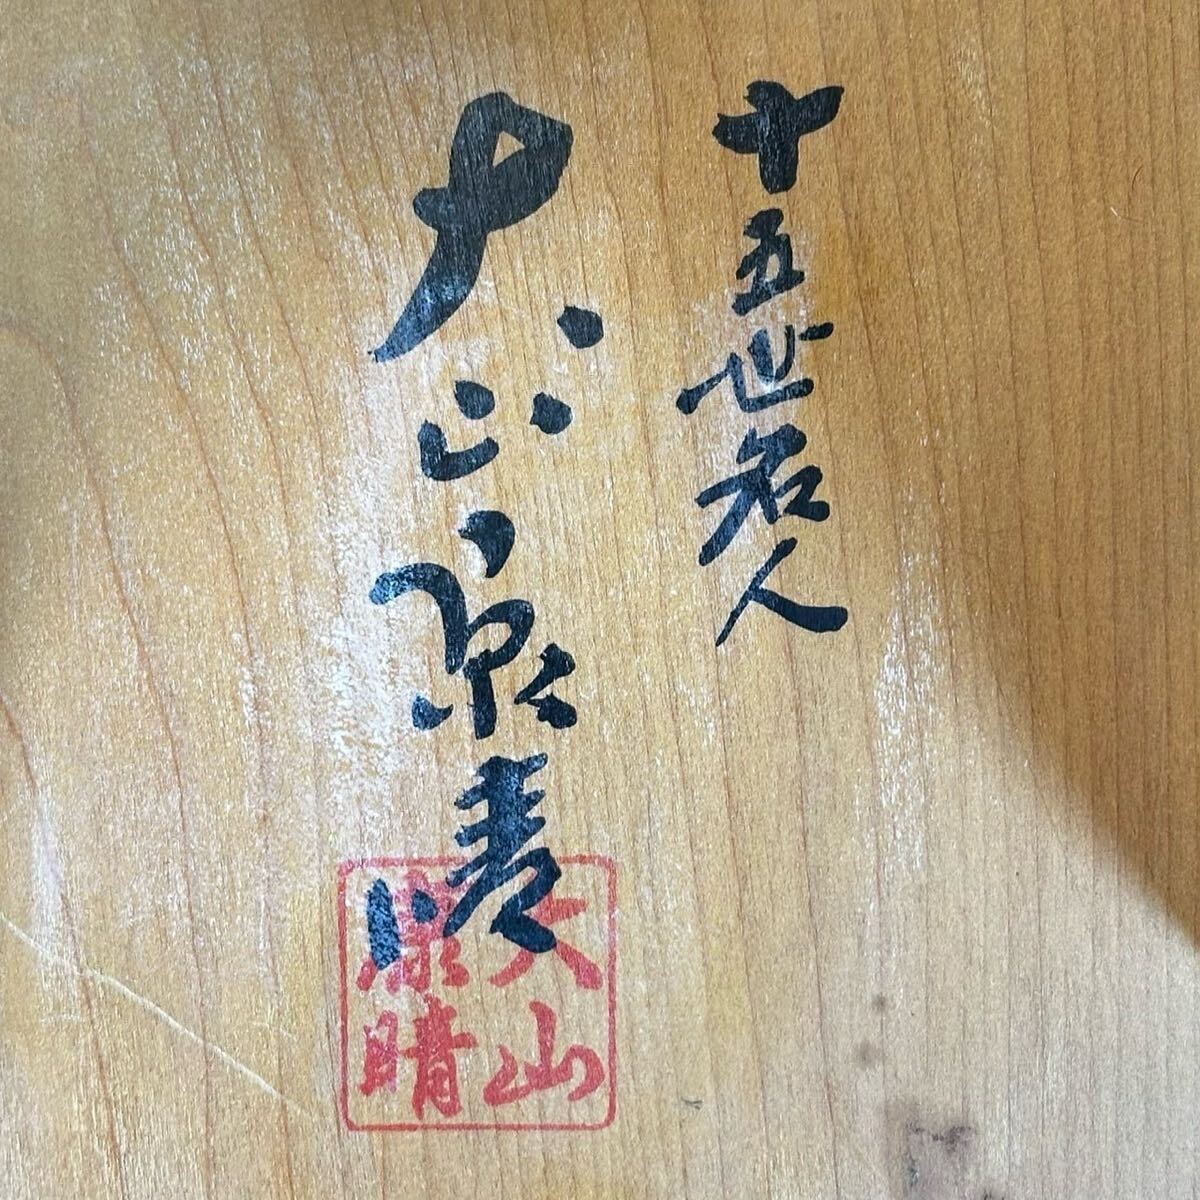 十五世名人
大山康晴
大山
康晴